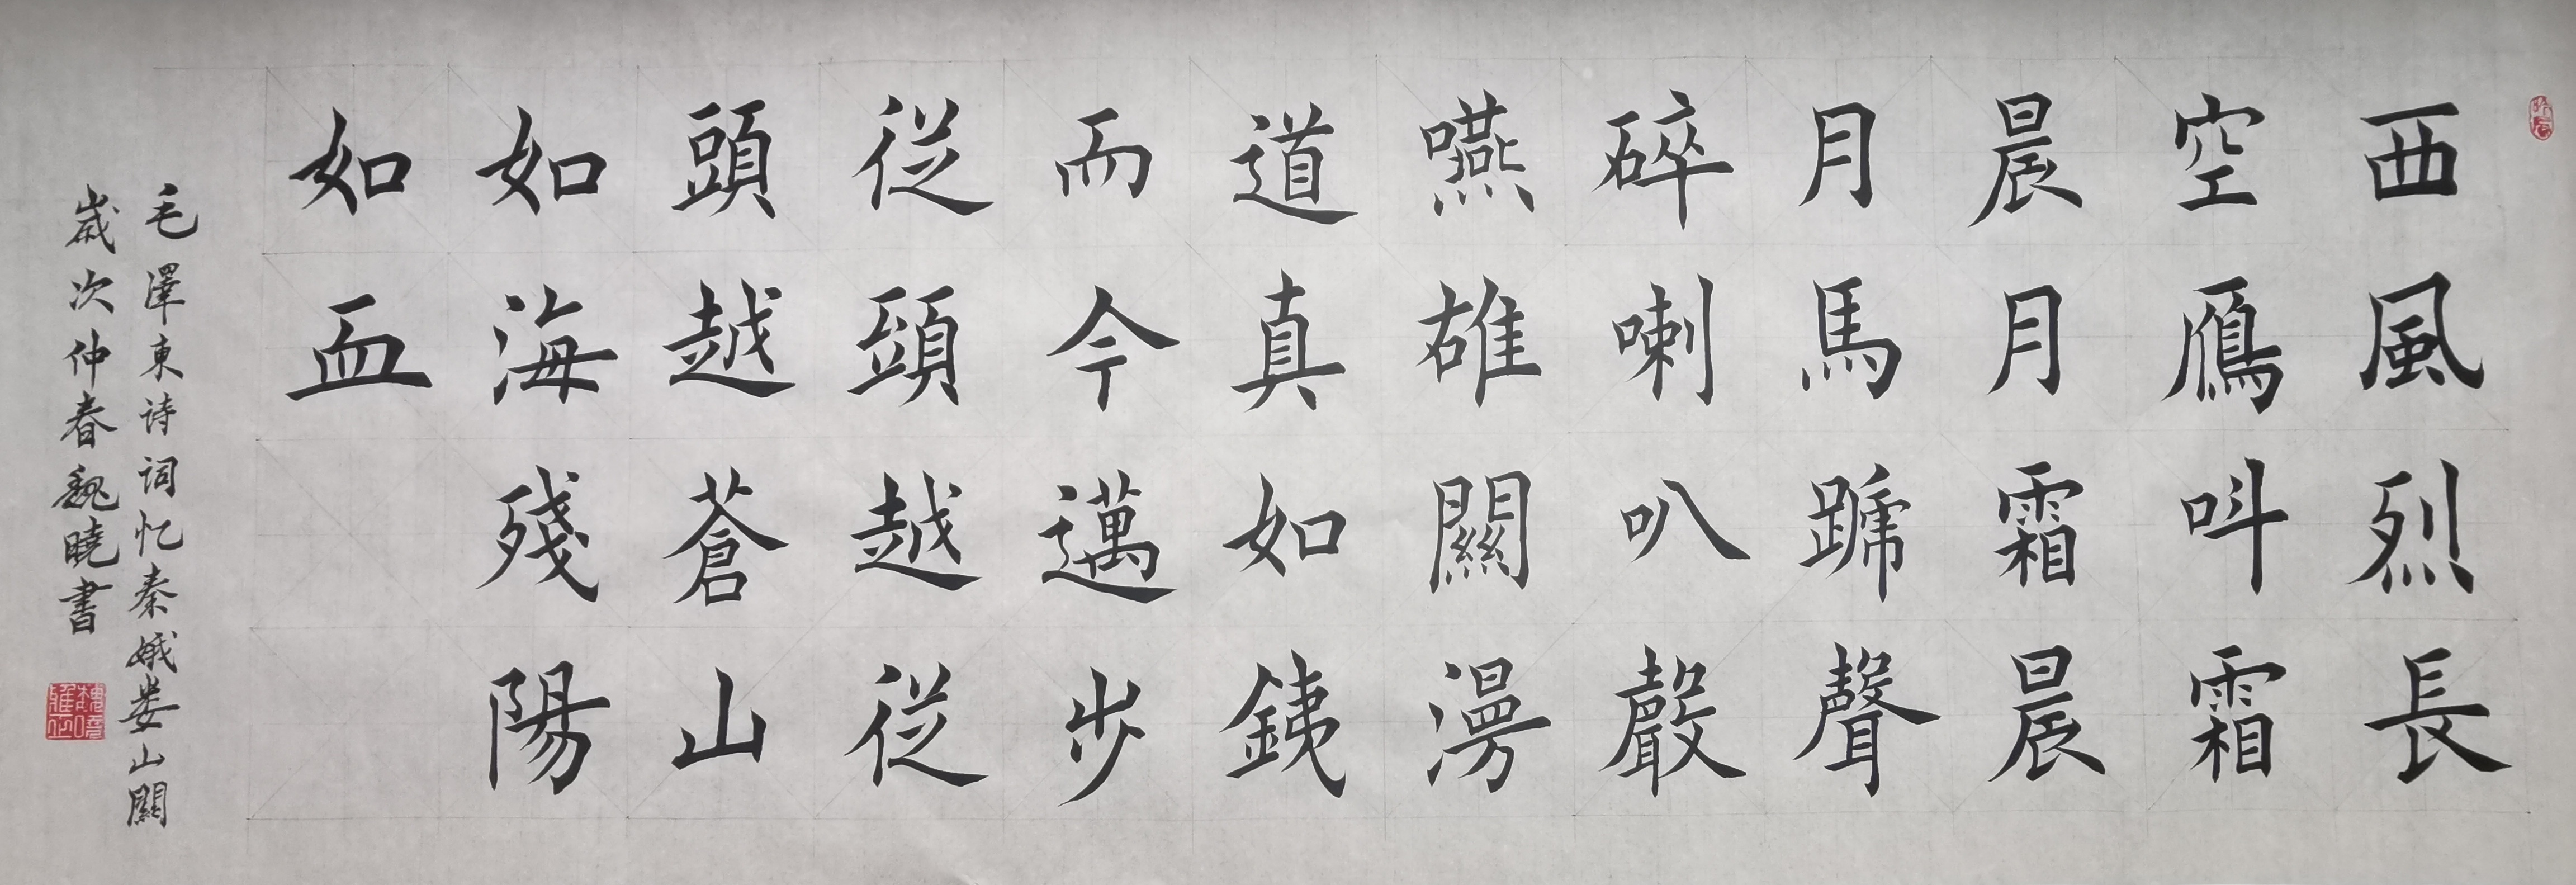 西風烈長
空鴈呌霜
晨月霜晨
月馬蹄聲
碎喇叭聲
嚥雄關漫
道真如銕
而今邁步
従頭越従
頭越蒼山
如海殘陽
如血
毛澤東诗词忆秦娥娄山關
歲次仲春魏曉書